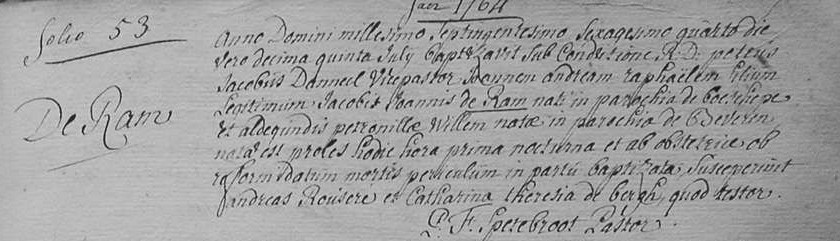 Jaer 1764
Folio 53
De Ram
Anno Domini millesimo Septingentesimo Sexagesimo quarto die
vero decima quinta July baptizavit Sub Conditione R. D. petrus
Jacobus Danneel Vicepastor Joannem andream raphaëlem filium
legitimum Jacobi Joannis de Ram nati in parochia de boeschepe
et aldegundis petronillæ Willem natæ in parochia de Beveren
nata est proles hodie hora prima nocturna et ab obstetrice ob
reformidatum mortis periculum in partu baptizata, Susceperunt
andreas Rousere et Catharina theresia de bergh, quod testor.
P. F. Spetebroot Pastor.